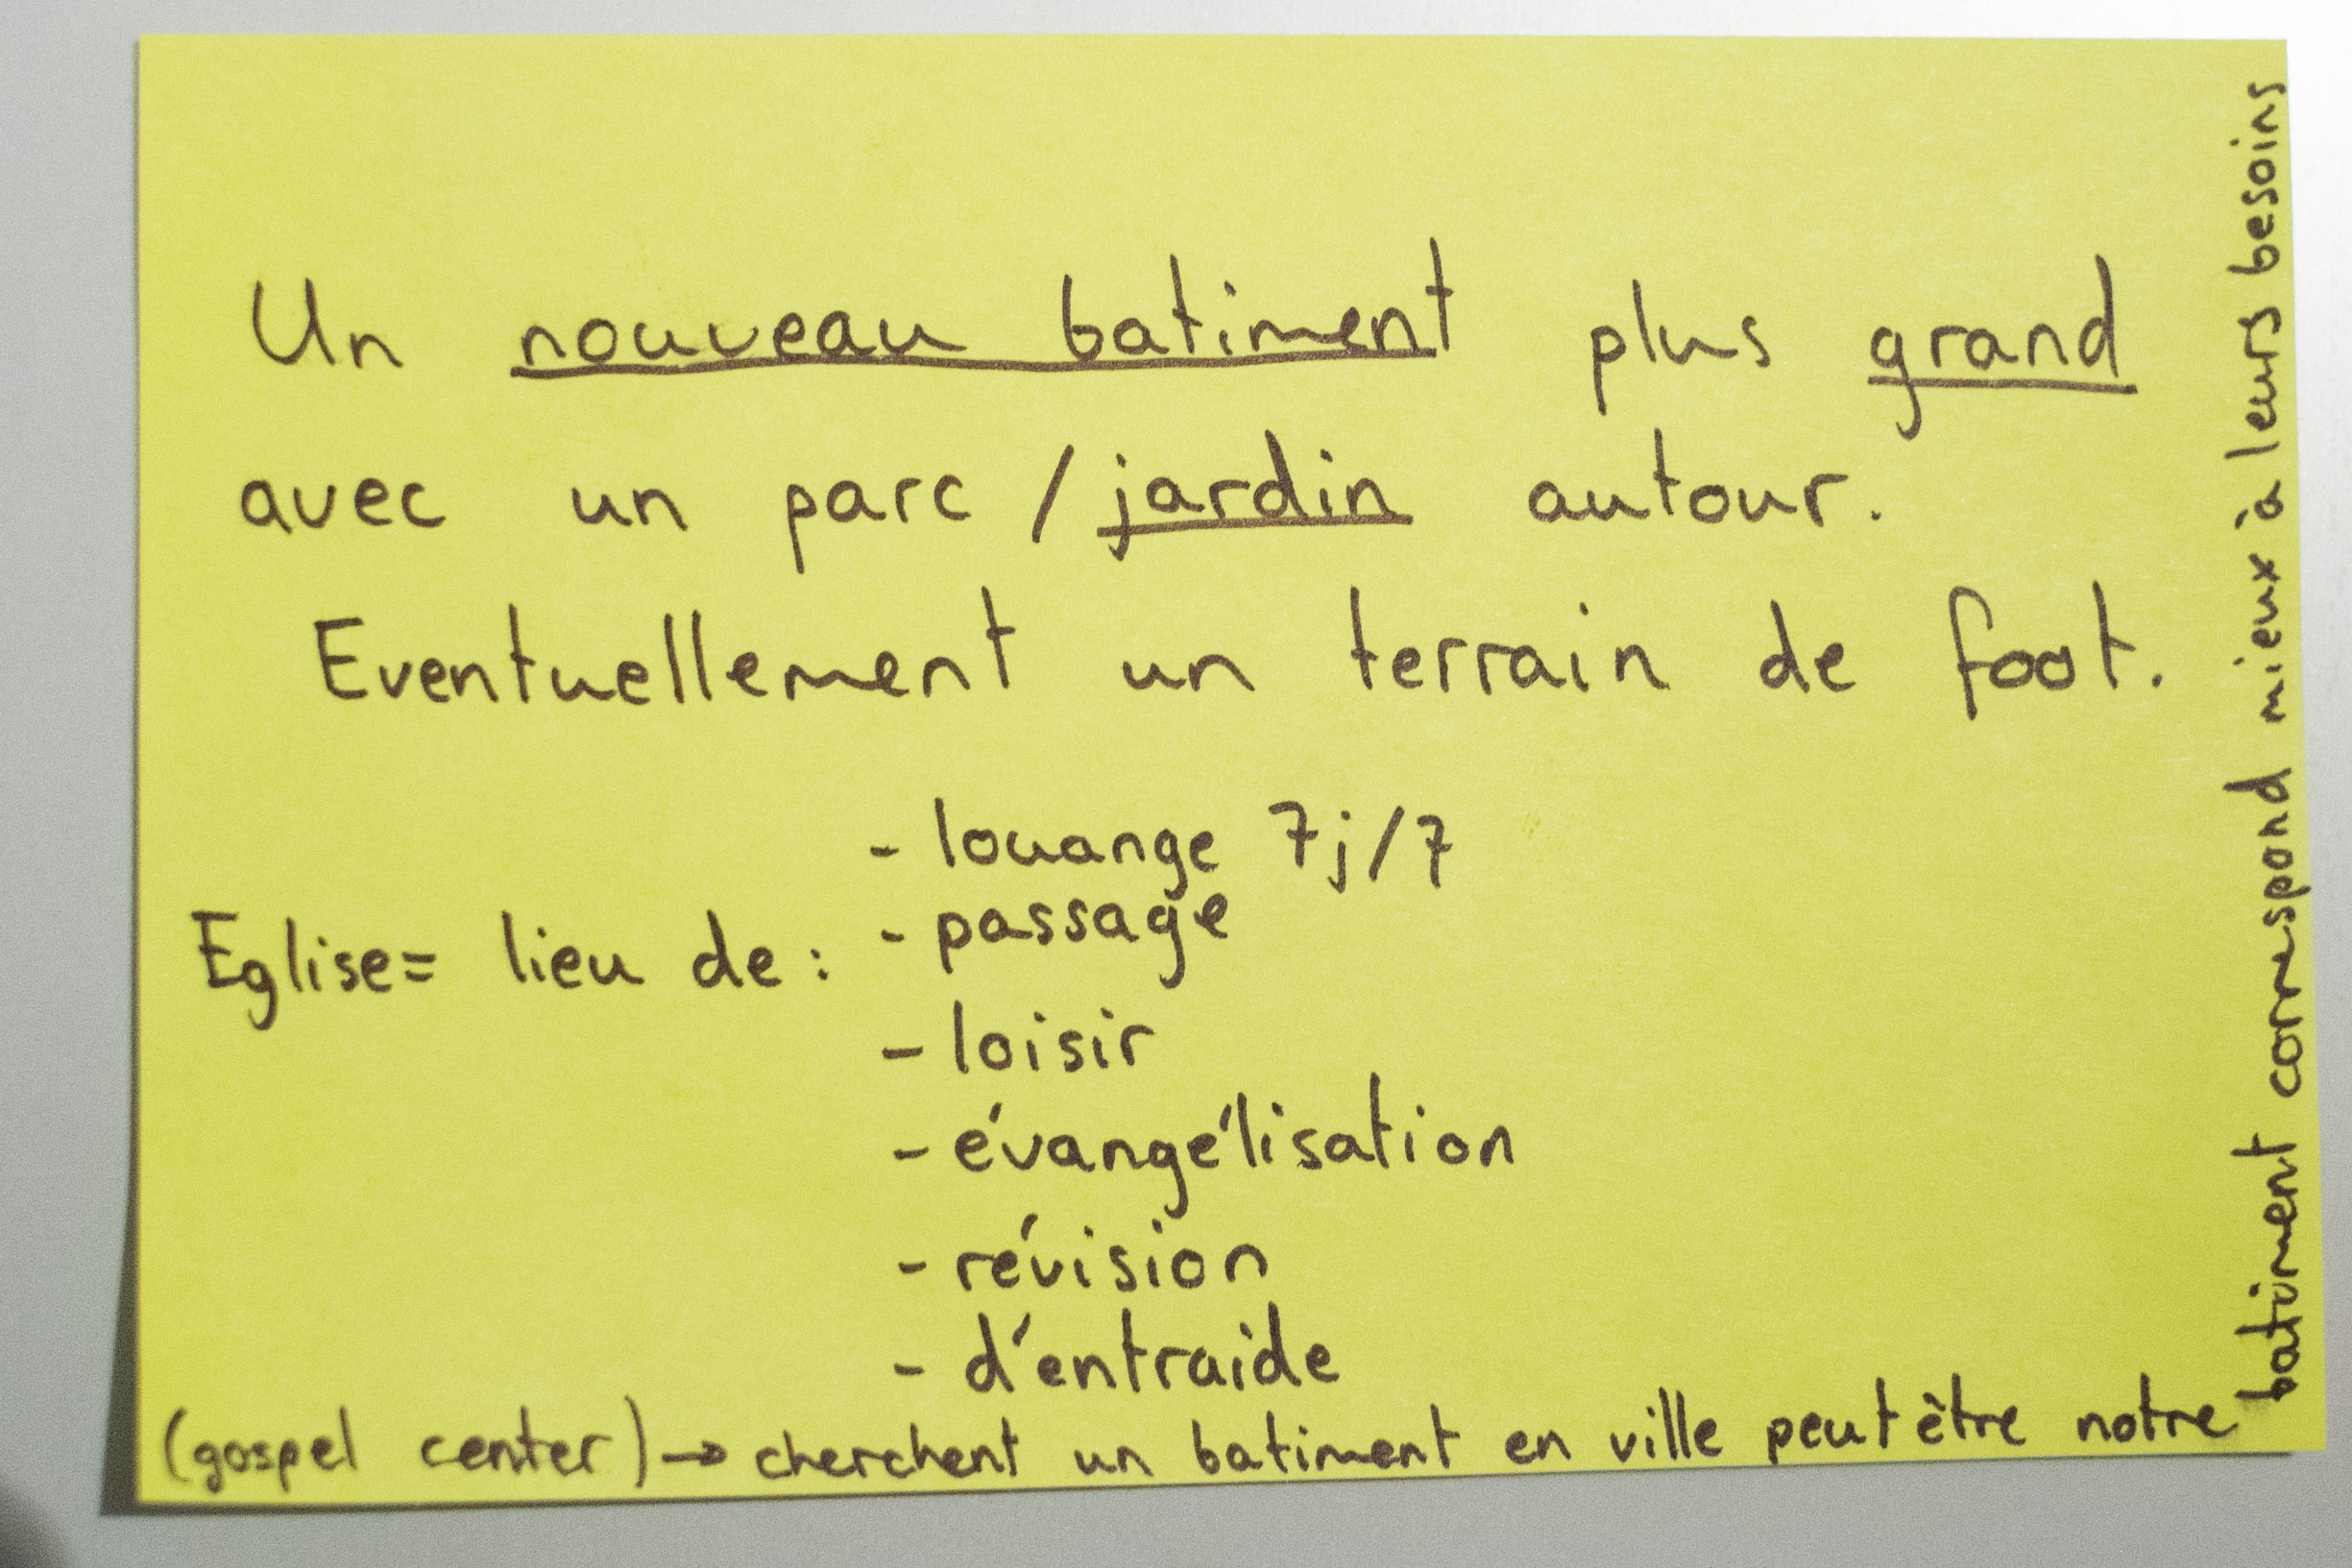 Un nouveau batiment plus grand
avec un parc / jardin autour.
Eventuellement un terrain de foot.
Eglise= lieu de :
- louange 7j/7
- passage
- loisir
- évangélisation
- révision
- d'entraide
(gospel center) → cherchent un batiment en ville peut être notre
batiment correspond mieux à leurs besoins